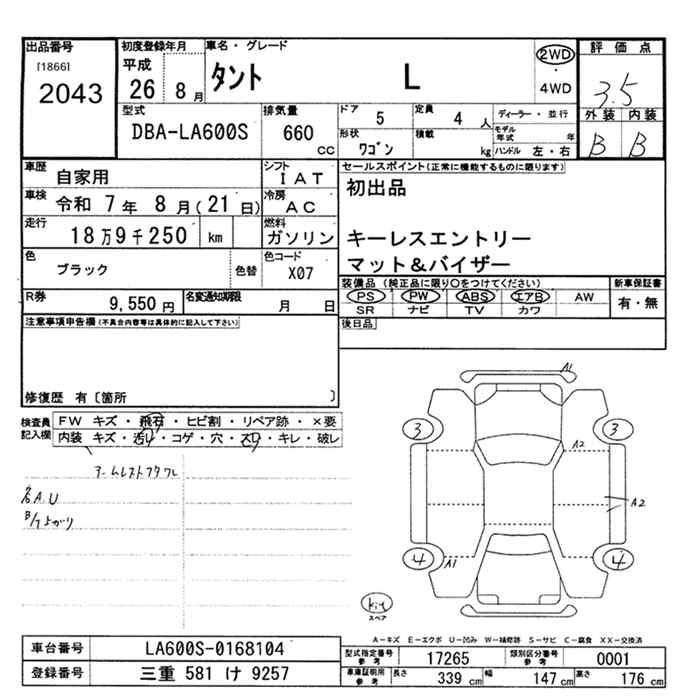 出品番号 初度登録年月 車名・グレード 評価点
[1866] 平成 タント L 2WD
2043 26 8月 ・ 4WD 3.5
型式 排気量 ドア 5 定員 4人 ディーラー・並行 外装 内装
DBA-LA600S 660cc 形状 ワゴン 積載 kg モデル年式 年 B B
ハンドル 左・右
車歴 自家用 シフト IAT セールスポイント(正常に機能するものに限ります)
車検 令和 7年 8月(21日) 冷房 AC 初出品
走行 18万9千250 km 燃料 ガソリン キーレスエントリー
色 ブラック 色替 色コード X07 マット&バイザー
R券 9,550円 名変通知期限 月 日
装備品(純正品に限り○をつけてください) 新車保証書
PS PW ABS エアB AW 有・無
SR ナビ TV カワ
注意事項申告欄(不具合内容等は具体的に記入して下さい) 後日品
修復歴 有〔箇所 〕
検査員記入欄 FW キズ・飛石・ヒビ割・リペア跡・×要
内装 キズ・汚れ・コゲ・穴・スレ・キレ・破レ
A1
3 3
A2
A2
4 A1 4
スペア
A-キズ E-エクボ U-凹み W-補修跡 S-サビ C-腐食 XX-交換済
車台番号 LA600S-0168104
登録番号 三重 581 け 9257
型式指定番号 参考 17265 類別区分番号 参考 0001
車庫証明用 参考 長さ 339cm 幅 147cm 高さ 176cm